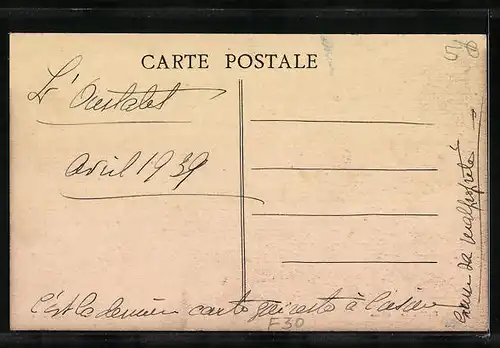 CARTE POSTALE
L'Oustalet
Avril 1939
C'est la dernière carte qui reste à
F30
malpropreté